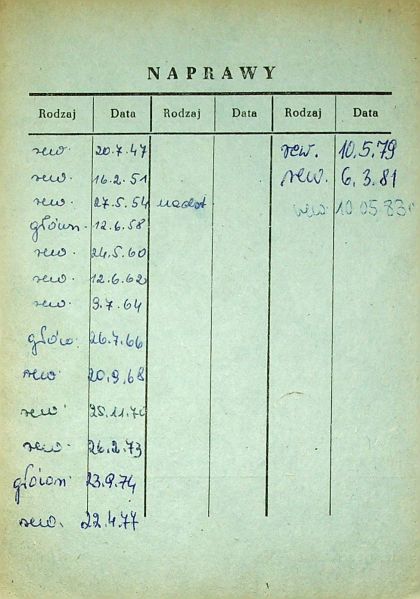 NAPRAWY
Rodzaj Data Rodzaj Data Rodzaj Data
rew. 20.7.47 rew. 10.5.79
rew. 16.2.51 rew. 6.3.81
rew. 27.5.54 rew 10.05.83
główn. 12.6.58
rew. 24.5.60
rew. 12.6.62
rew. 9.7.64
główn. 26.7.66
rew. 20.9.68
rew. 25.11.70
rew. 24.2.73
główn 23.9.74
rew. 22.4.77